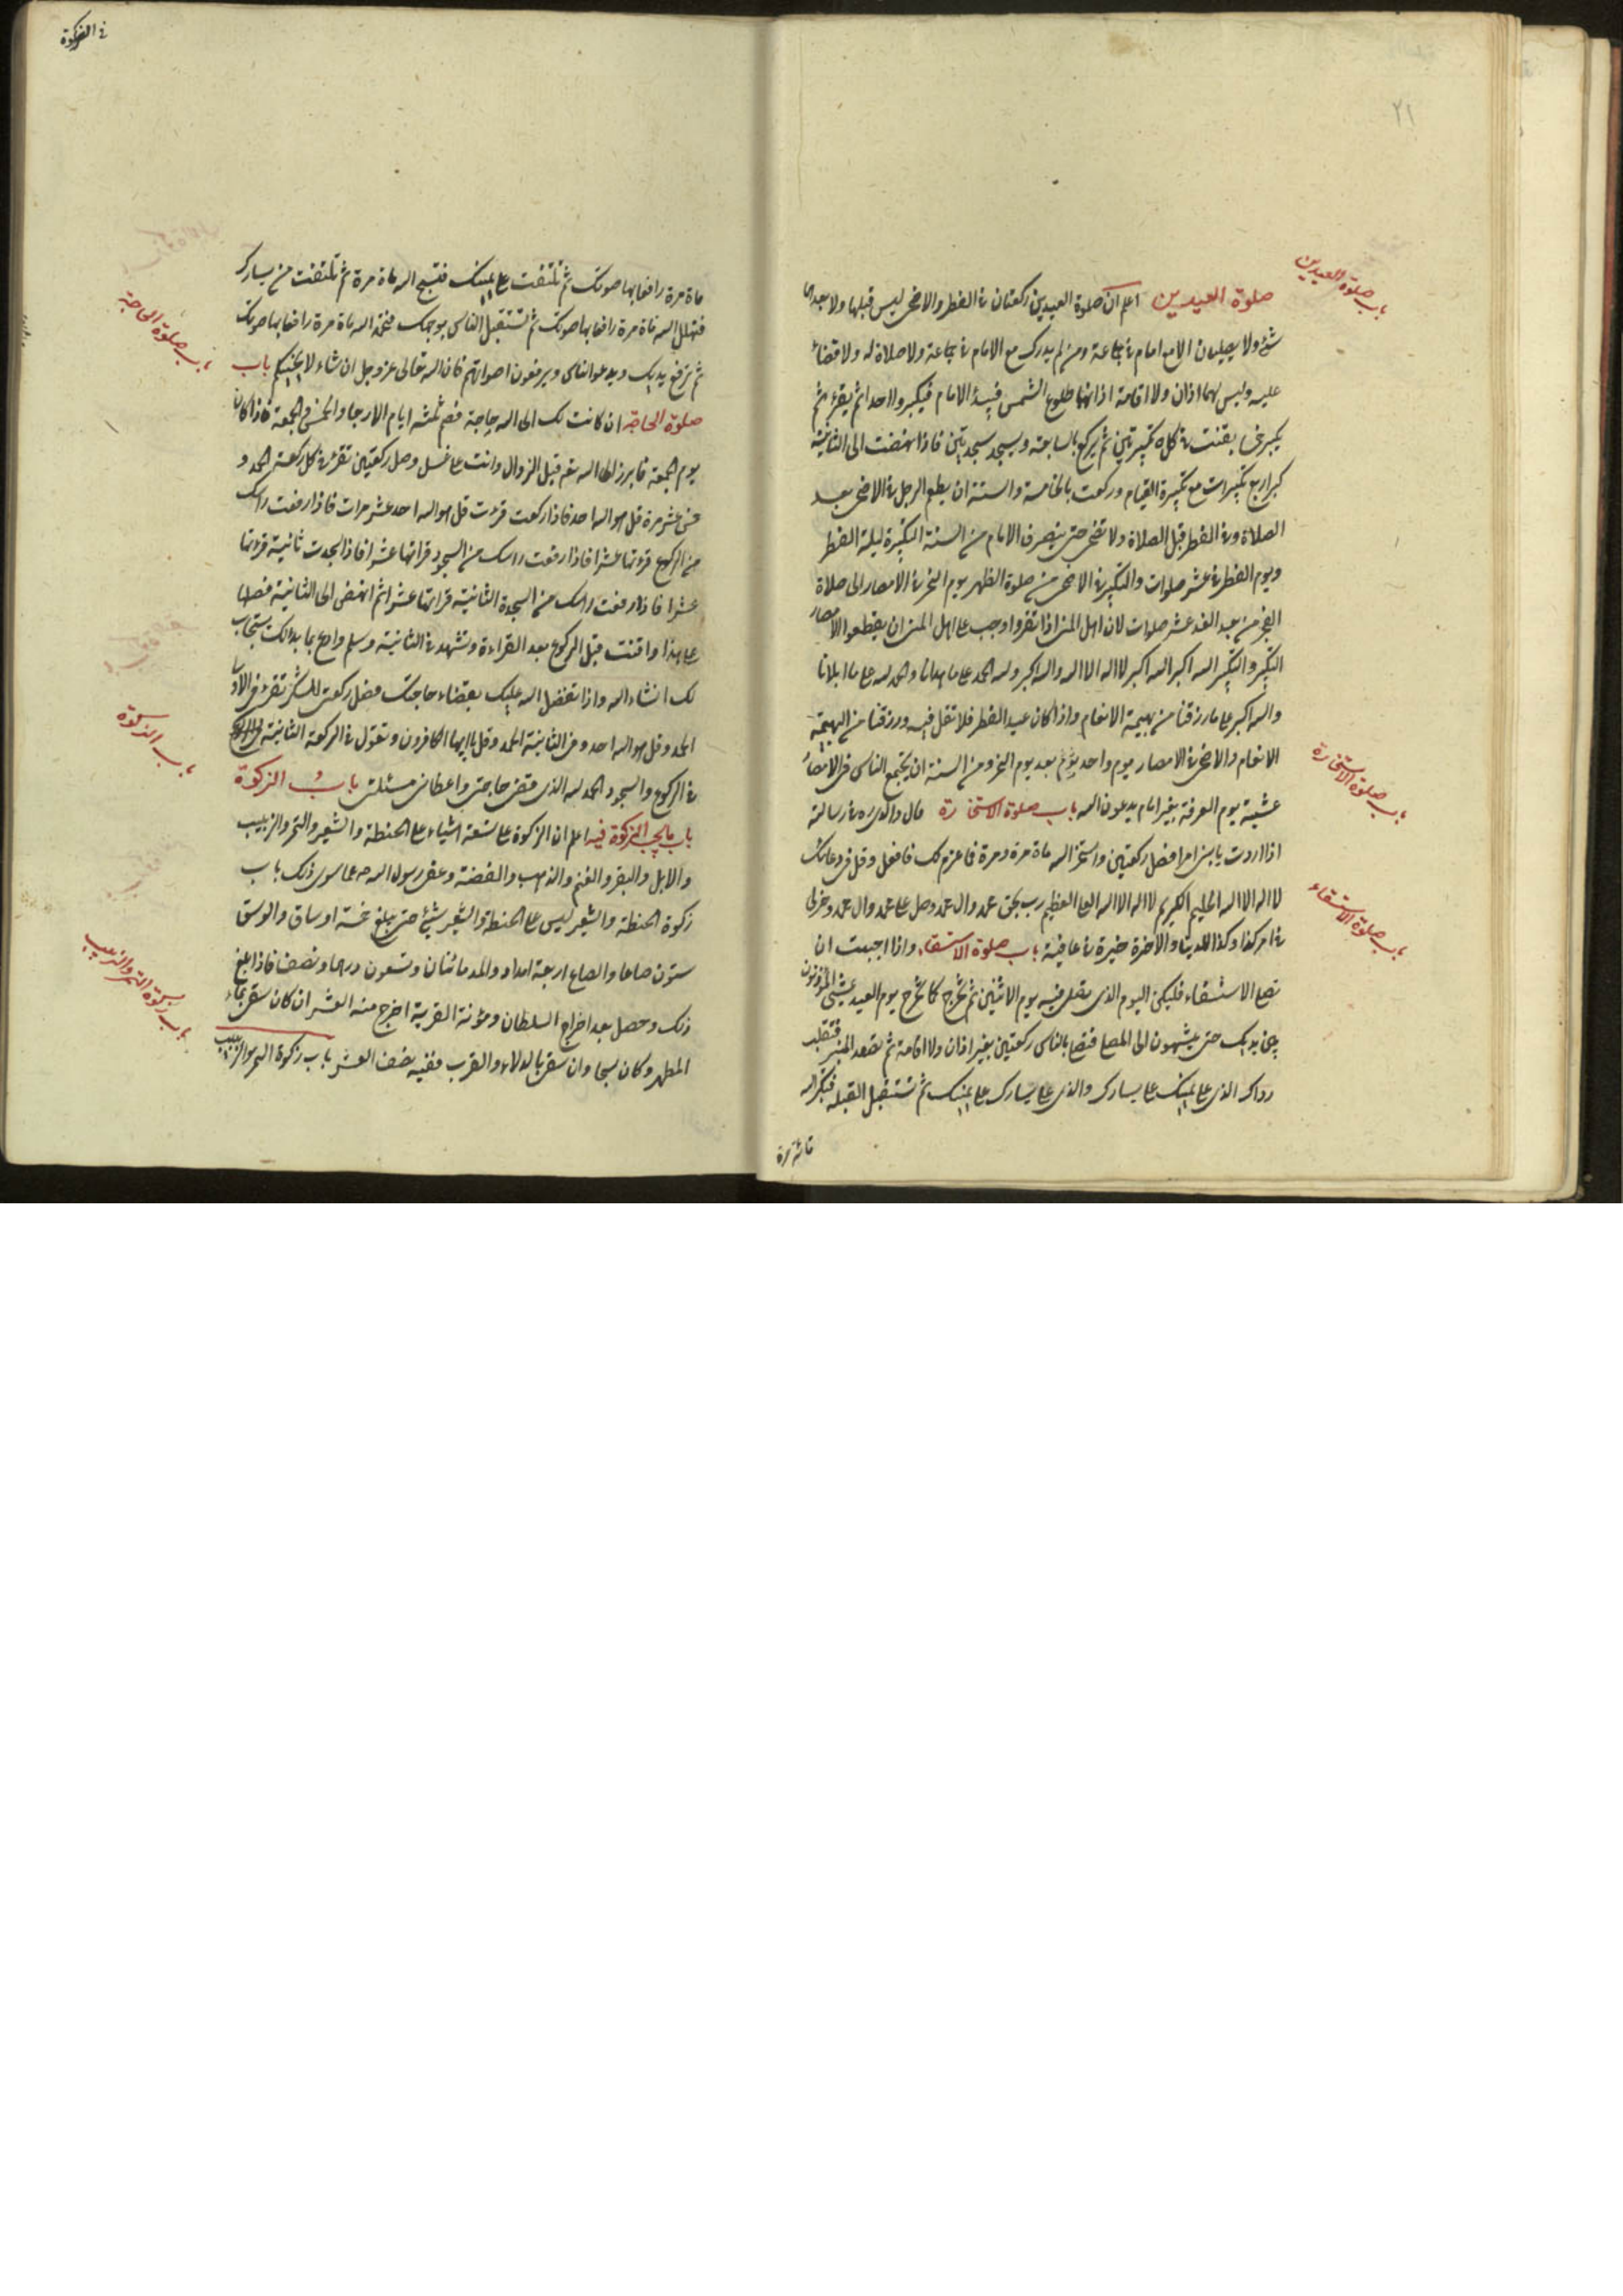 ٢١
باب صلوة العيدين
صلوة العيدين اعلم ان صلوة العيدين ركعتان في الفطر والاضحى ليس قبلها ولا بعدها
شئ ولا يصليان الا مع امام في جماعة ومن لم يدرك مع الامام في جماعة فلا صلاة له ولا قضاء
عليه وليس لهما اذان ولا اقامة اذانهما طلوع الشمس فيبدء الامام فيكبر واحدا ثم يقرء ثم
يكبر خمسا يقنت في كل تكبيرتين ثم يركع بالسابعة ويسجد سجدتين فاذا نهضت الى الثانية
كبر اربع تكبيرات مع تكبيرة القيام وركعت بالخامسة والسنة ان يطعم الرجل في الاضحى بعد
الصلاة وفي الفطر قبل الصلاة ولا تضحى حتى ينصرف الامام من السنة التكبيرة ليلة الفطر
ويوم الفطر في عشر صلوات والتكبير في الاضحى من صلوة الظهر يوم النحر في الامصار الى صلاة
الفجر من بعد الغد عشر صلوات لان اهل المنى اذا نفروا وجب على اهل المنى ان يقطعوا الامصار
التكبير والتكبير الله اكبر الله اكبر لا اله الا الله والله اكبر ولله الحمد على ما هدانا والحمد لله على ما ابلانا
والله اكبر على ما رزقنا من بهيمة الانعام واذا كان عيد الفطر فلا تقل فيه ورزقنا من البهيمة
الانعام والاضحى في الامصار يوم واحد بعد يوم النحر ومن السنة ان يجتمع الناس في الامصار
عشية يوم العرفة بغير امام يدعون الله باب صلوة الاستخارة قال والدي ره في رسالته
باب صلوة الاستخارة
اذا اردت يا بني امرا فصل ركعتين واستخر الله مائة مرة ومرة فما عزم لك فافعل وقل في دعائك
لا اله الا الله الحليم الكريم لا اله الا الله العلي العظيم رب بحق محمد وال محمد وصل على محمد وال محمد وخر لي
في امر كذا وكذا للدنيا والاخرة خيرة في عافية باب صلوة الاستسقاء واذا احببت ان
باب صلوة الاستسقاء
تصلى الاستسقاء فليكن اليوم الذي تصلى فيه يوم الاثنين ثم تخرج كما تخرج يوم العيد يمشى المؤذنون
بين يديك حتى ينتهون الى المصلى فتصلى بالناس ركعتين بغير اذان ولا اقامة ثم تصعد المنبر فتقلب
رداك الذي على يمينك على يسارك والذي على يسارك على يمينك ثم تستقبل القبلة فتكبر الله
مائة مرة
مائة مرة رافعا بها صوتك ثم تلتفت على يمينك فتسبح الله مائة مرة ثم تلتفت من يسارك
فتهلل الله مائة مرة رافعا بها صوتك ثم تستقبل الناس بوجهك فتحمد الله مائة مرة رافعا بها صوتك
ثم ترفع يديك ويدعوا الناس ويرفعون اصواتهم فان الله تعالى عز وجل ان شاء لا يخيبكم باب
باب صلوة الحاجة
صلوة الحاجة ان كانت لك الى الله حاجة فصم ثلثة ايام الاربعا والخميس والجمعة فاذا كان
يوم الجمعة فابرز الى الله تعه قبل الزوال وانت على غسل وصل ركعتين تقرء في كل ركعة الحمد و
خمس عشر مرة قل هو الله احد فاذا ركعت قرءت قل هو الله احد عشر مرات فاذا رفعت راسك
من الركوع قرءتها عشرا فاذا رفعت راسك من السجود قراتها عشرا فاذا سجدت ثانية قرءتها
عشرا فاذا رفعت راسك من السجدة الثانية قراتها عشرا ثم انهض الى الثانية فصلها
على هذا واقنت قبل الركوع بعد القراءة وتشهد في الثانية وسلم وادع بما بدا لك يستجاب
لك انشاء الله واذا تفضل الله عليك بقضاء حاجتك فصل ركعتى للشكر تقرء في الاولى
الحمد وقل هو الله احد وفي الثانية الحمد وقل يا ايها الكافرون وتقول في الركعة الثانية
في الركوع والسجود الحمد لله الذي قضى حاجتى واعطانى مسئلتى باب الزكوة
باب الزكوة
باب ما يجب الزكوة فيه اعلم ان الزكوة على تسعة اشياء على الحنطة والشعير والتمر والزبيب
والابل والبقر والغنم والذهب والفضة وعفى رسول الله ص عما سوى ذلك باب
زكوة الحنطة والشعير ليس على الحنطة والشعير شئ حتى يبلغ خمسة اوساق والوسق
باب زكوة التمر والزبيب
ستون صاعا والصاع اربعة امداد والمد مائتان وتسعون درهما ونصف فاذا بلغ
ذلك وحصل بعد اخراج السلطان ومؤنة القرية اخرج منه العشر ان كان سقى بماء
المطر وكان سيحا وان سقى بالدلاء والغرب ففيه نصف العشر باب زكوة التمر والزبيب